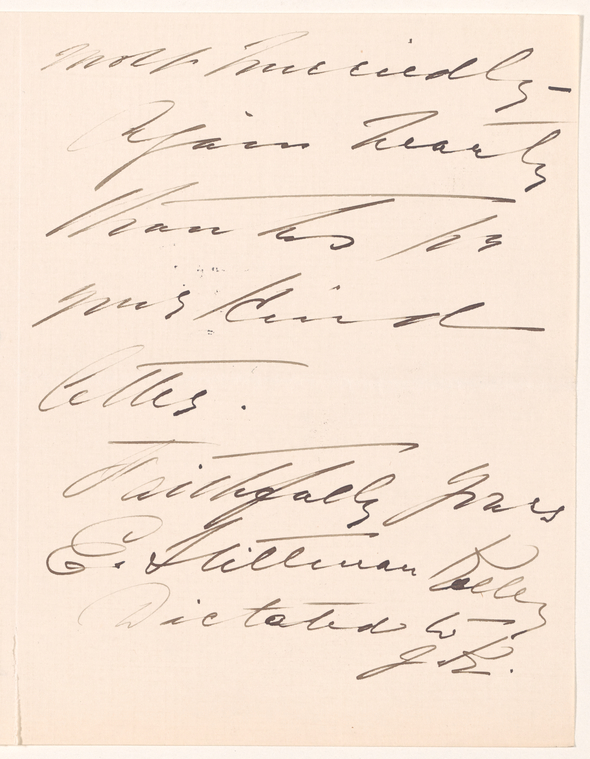 most hurriedly –
Again hearty
thanks for
your kind
letter.
Faithfully yours
E. Stillman Kelley
Dictated to
J.K.